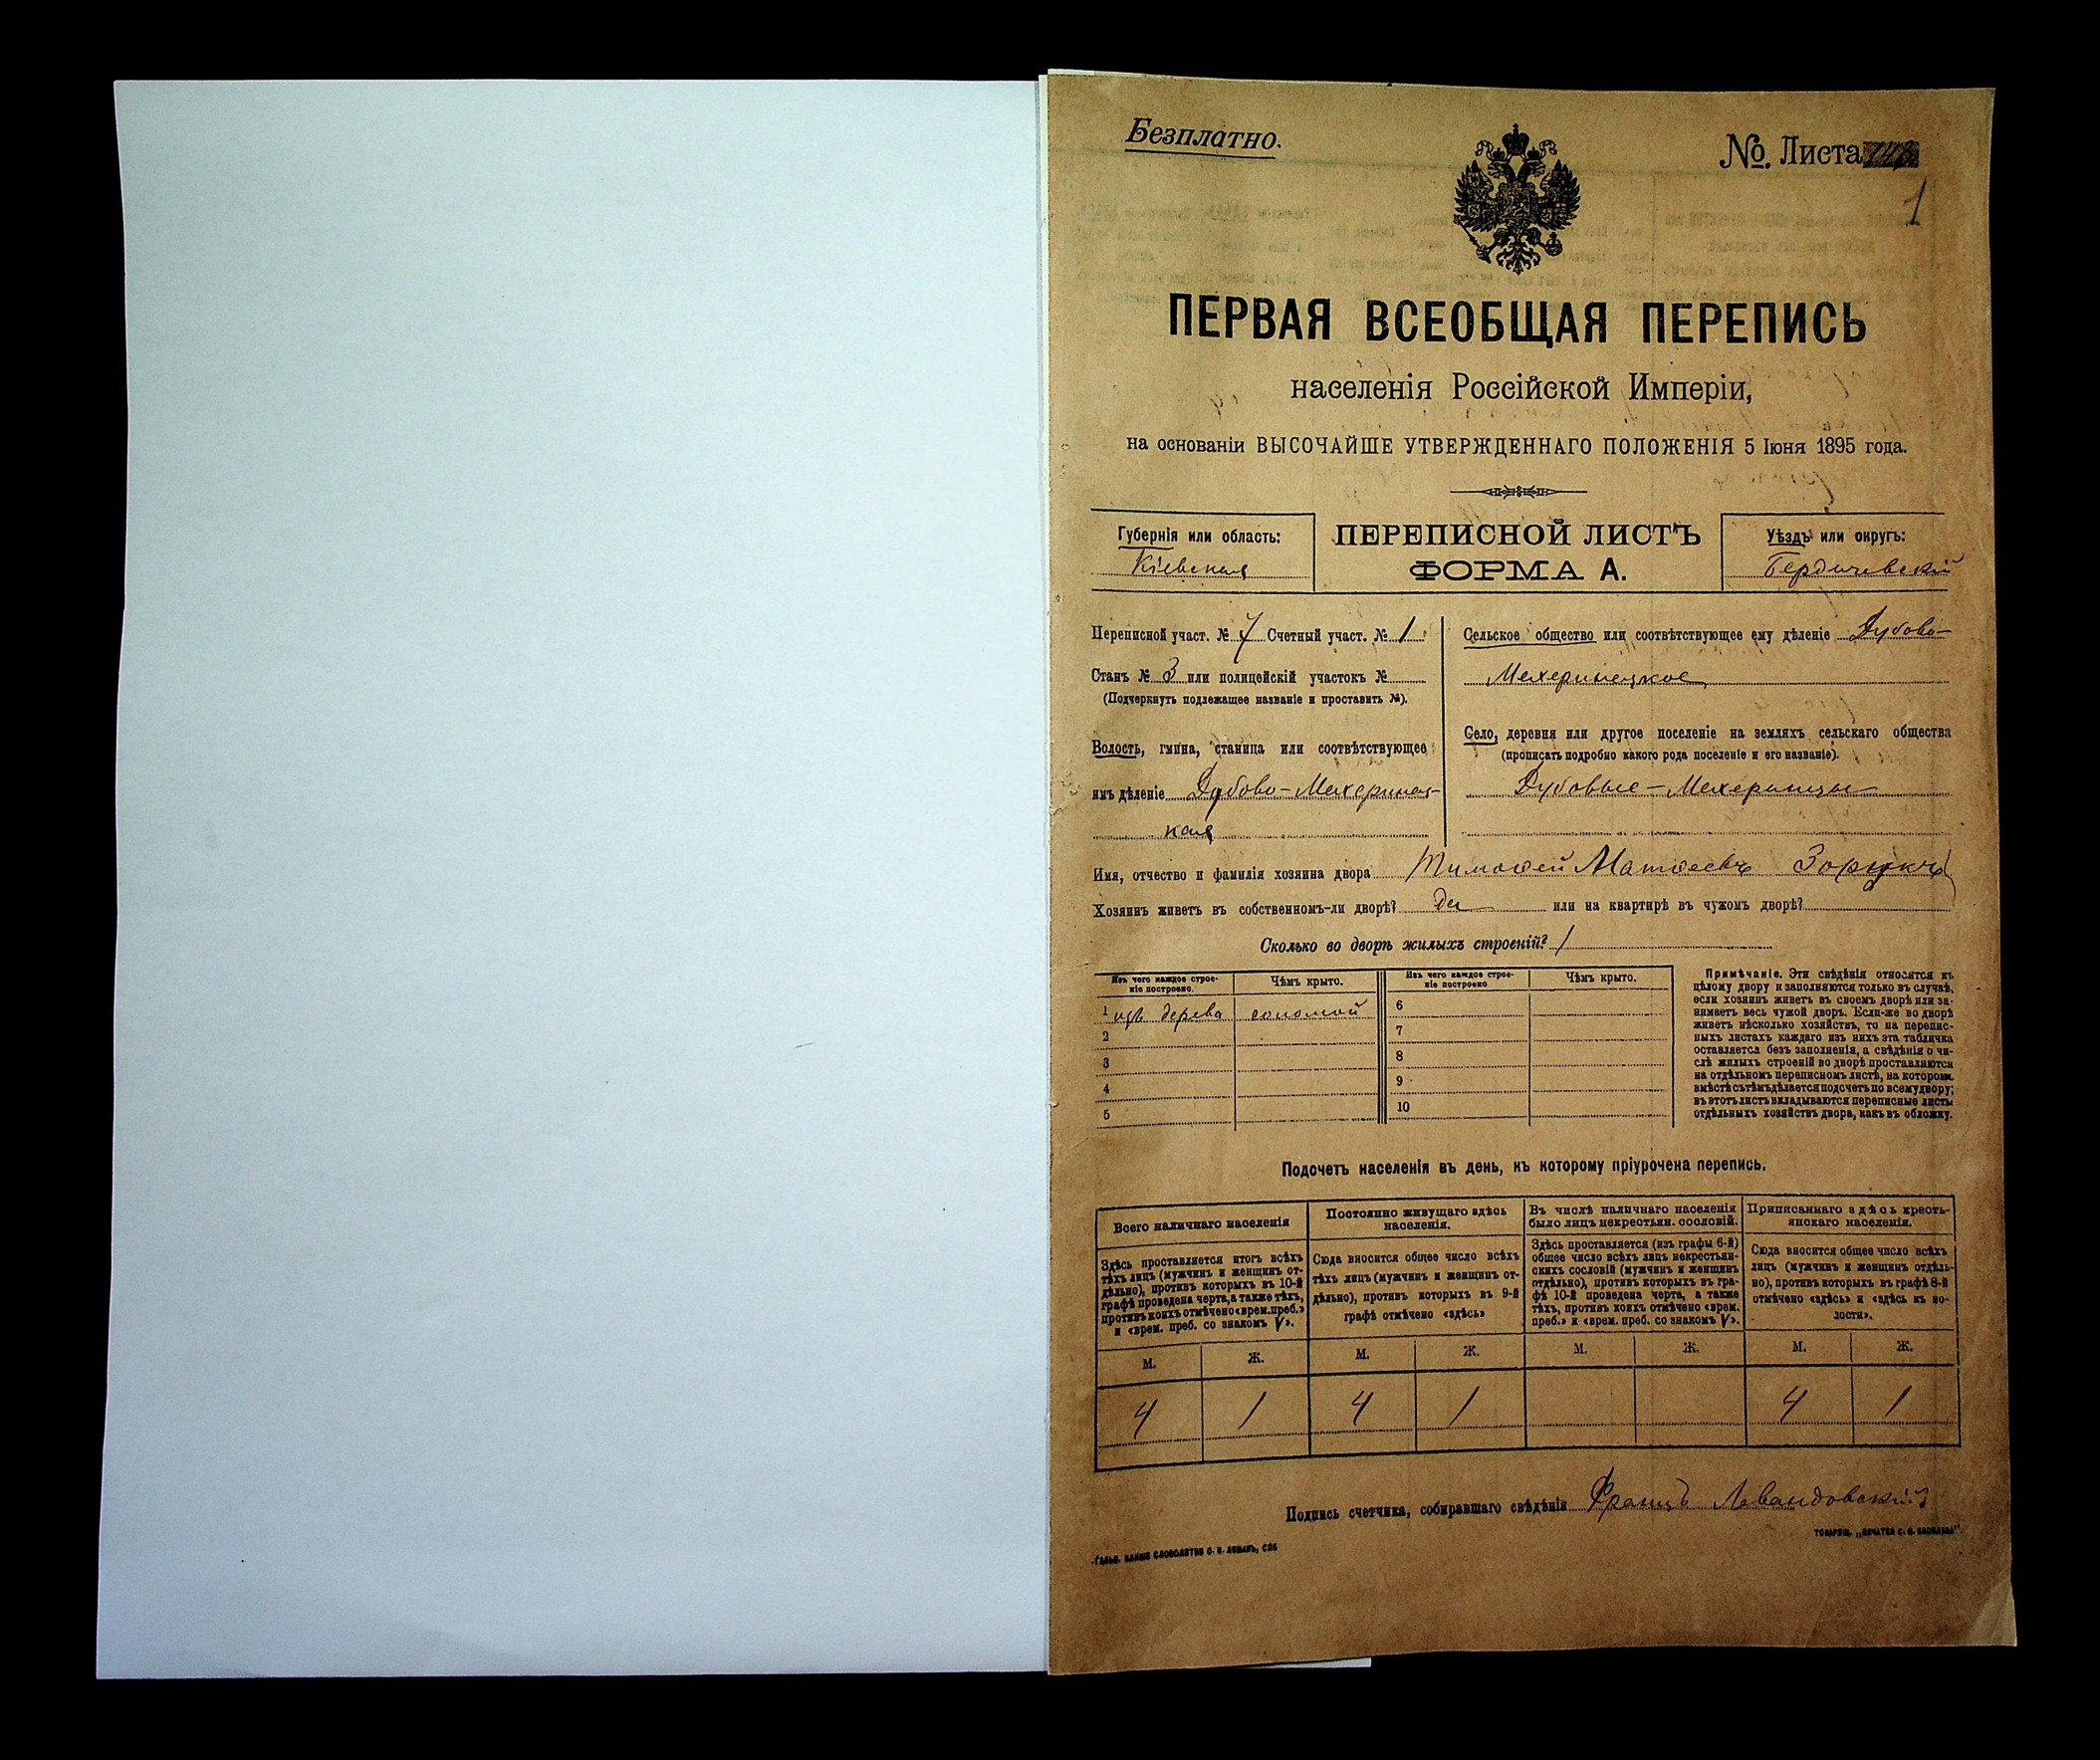 Безплатно.
№ Листа
1
ПЕРВАЯ ВСЕОБЩАЯ ПЕРЕПИСЬ
населенія Россійской Имперіи,
на основаніи ВЫСОЧАЙШЕ УТВЕРЖДЕННАГО ПОЛОЖЕНІЯ 5 Іюня 1895 года.
Губернія или область:
Кіевская
ПЕРЕПИСНОЙ ЛИСТЪ
ФОРМА А.
Уѣздъ или округъ:
Бердичевскій
Переписной участ. № 7 Счетный участ. № 1
Станъ № 3 или полицейскій участокъ №
(Подчеркнуть подлежащее названіе и проставить №).
Волость, гмина, станица или соотвѣтствующее
имъ дѣленіе Дубово-Махаринец-
кая
Сельское общество или соотвѣтствующее ему дѣленіе Дубово-
Махеринецкое
Село, деревня или другое поселеніе на земляхъ сельскаго общества
(прописать подробно какого рода поселеніе и его названіе).
Дубовые-Махеринцы
Имя, отчество и фамилія хозяина двора Тимоѳей Матѳеевъ
Хозяинъ живетъ въ собственномъ-ли дворѣ? да или на квартирѣ въ чужомъ дворѣ?
Сколько во дворѣ жилыхъ строеній? 1
Изъ чего каждое строе-
ніе построено.
Чѣмъ крыто.
1 изъ дерева соломой
2
3
4
5
Изъ чего каждое строе-
ніе построено
Чѣмъ крыто.
6
7
8
9
10
Примѣчаніе. Эти свѣдѣнія относятся къ
цѣлому двору и заполняются только въ случаѣ,
если хозяинъ живетъ въ своемъ дворѣ или за-
нимаетъ весь чужой дворъ. Если-же во дворѣ
живетъ нѣсколько хозяйствъ, то на перепис-
ныхъ листахъ каждаго изъ нихъ эта табличка
оставляется безъ заполненія, а свѣдѣнія о чи-
слѣ жилыхъ строеній во дворѣ проставляются
на отдѣльномъ переписномъ листѣ, на которомъ
вмѣстѣ съ тѣмъ дѣлается подсчетъ по всему двору;
въ этотъ листъ вкладываются переписные листы
отдѣльныхъ хозяйствъ двора, какъ въ обложку.
Подсчетъ населенія въ день, къ которому пріурочена перепись.
Всего наличнаго населенія
Здѣсь проставляется итогъ всѣхъ
тѣхъ лицъ (мужчинъ и женщинъ от-
дѣльно), противъ которыхъ въ 10-й
графѣ проведена черта, а также тѣхъ,
противъ коихъ отмѣчено «врем. преб.»
и «врем. преб. со знакомъ V».
М. Ж.
4 1
Постоянно живущаго здѣсь
населенія.
Сюда вносится общее число всѣхъ
тѣхъ лицъ (мужчинъ и женщинъ от-
дѣльно), противъ которыхъ въ 9-й
графѣ отмѣчено «здѣсь»
М. Ж.
4 1
Въ числѣ наличнаго населенія
было лицъ некрестьян. сословій.
Здѣсь проставляется (изъ графы 6-й)
общее число всѣхъ лицъ некрестьян-
скихъ сословій (мужчинъ и женщинъ
отдѣльно), противъ которыхъ въ гра-
фѣ 10-й проведена черта, а также
тѣхъ, противъ коихъ отмѣчено «врем.
преб.» и «врем. преб. со знакомъ V».
М. Ж.
Приписаннаго здѣсь кресть-
янскаго населенія.
Сюда вносится общее число всѣхъ
лицъ (мужчинъ и женщинъ отдѣль-
но), противъ которыхъ въ графѣ 8-й
отмѣчено «здѣсь» и «здѣсь къ во-
лости».
М. Ж.
4 1
Подпись счетчика, собиравшаго свѣдѣнія Францъ Левандовскій
ТОВАРИЩ. „ПЕЧАТНЯ С. П. ЯКОВЛЕВА“.